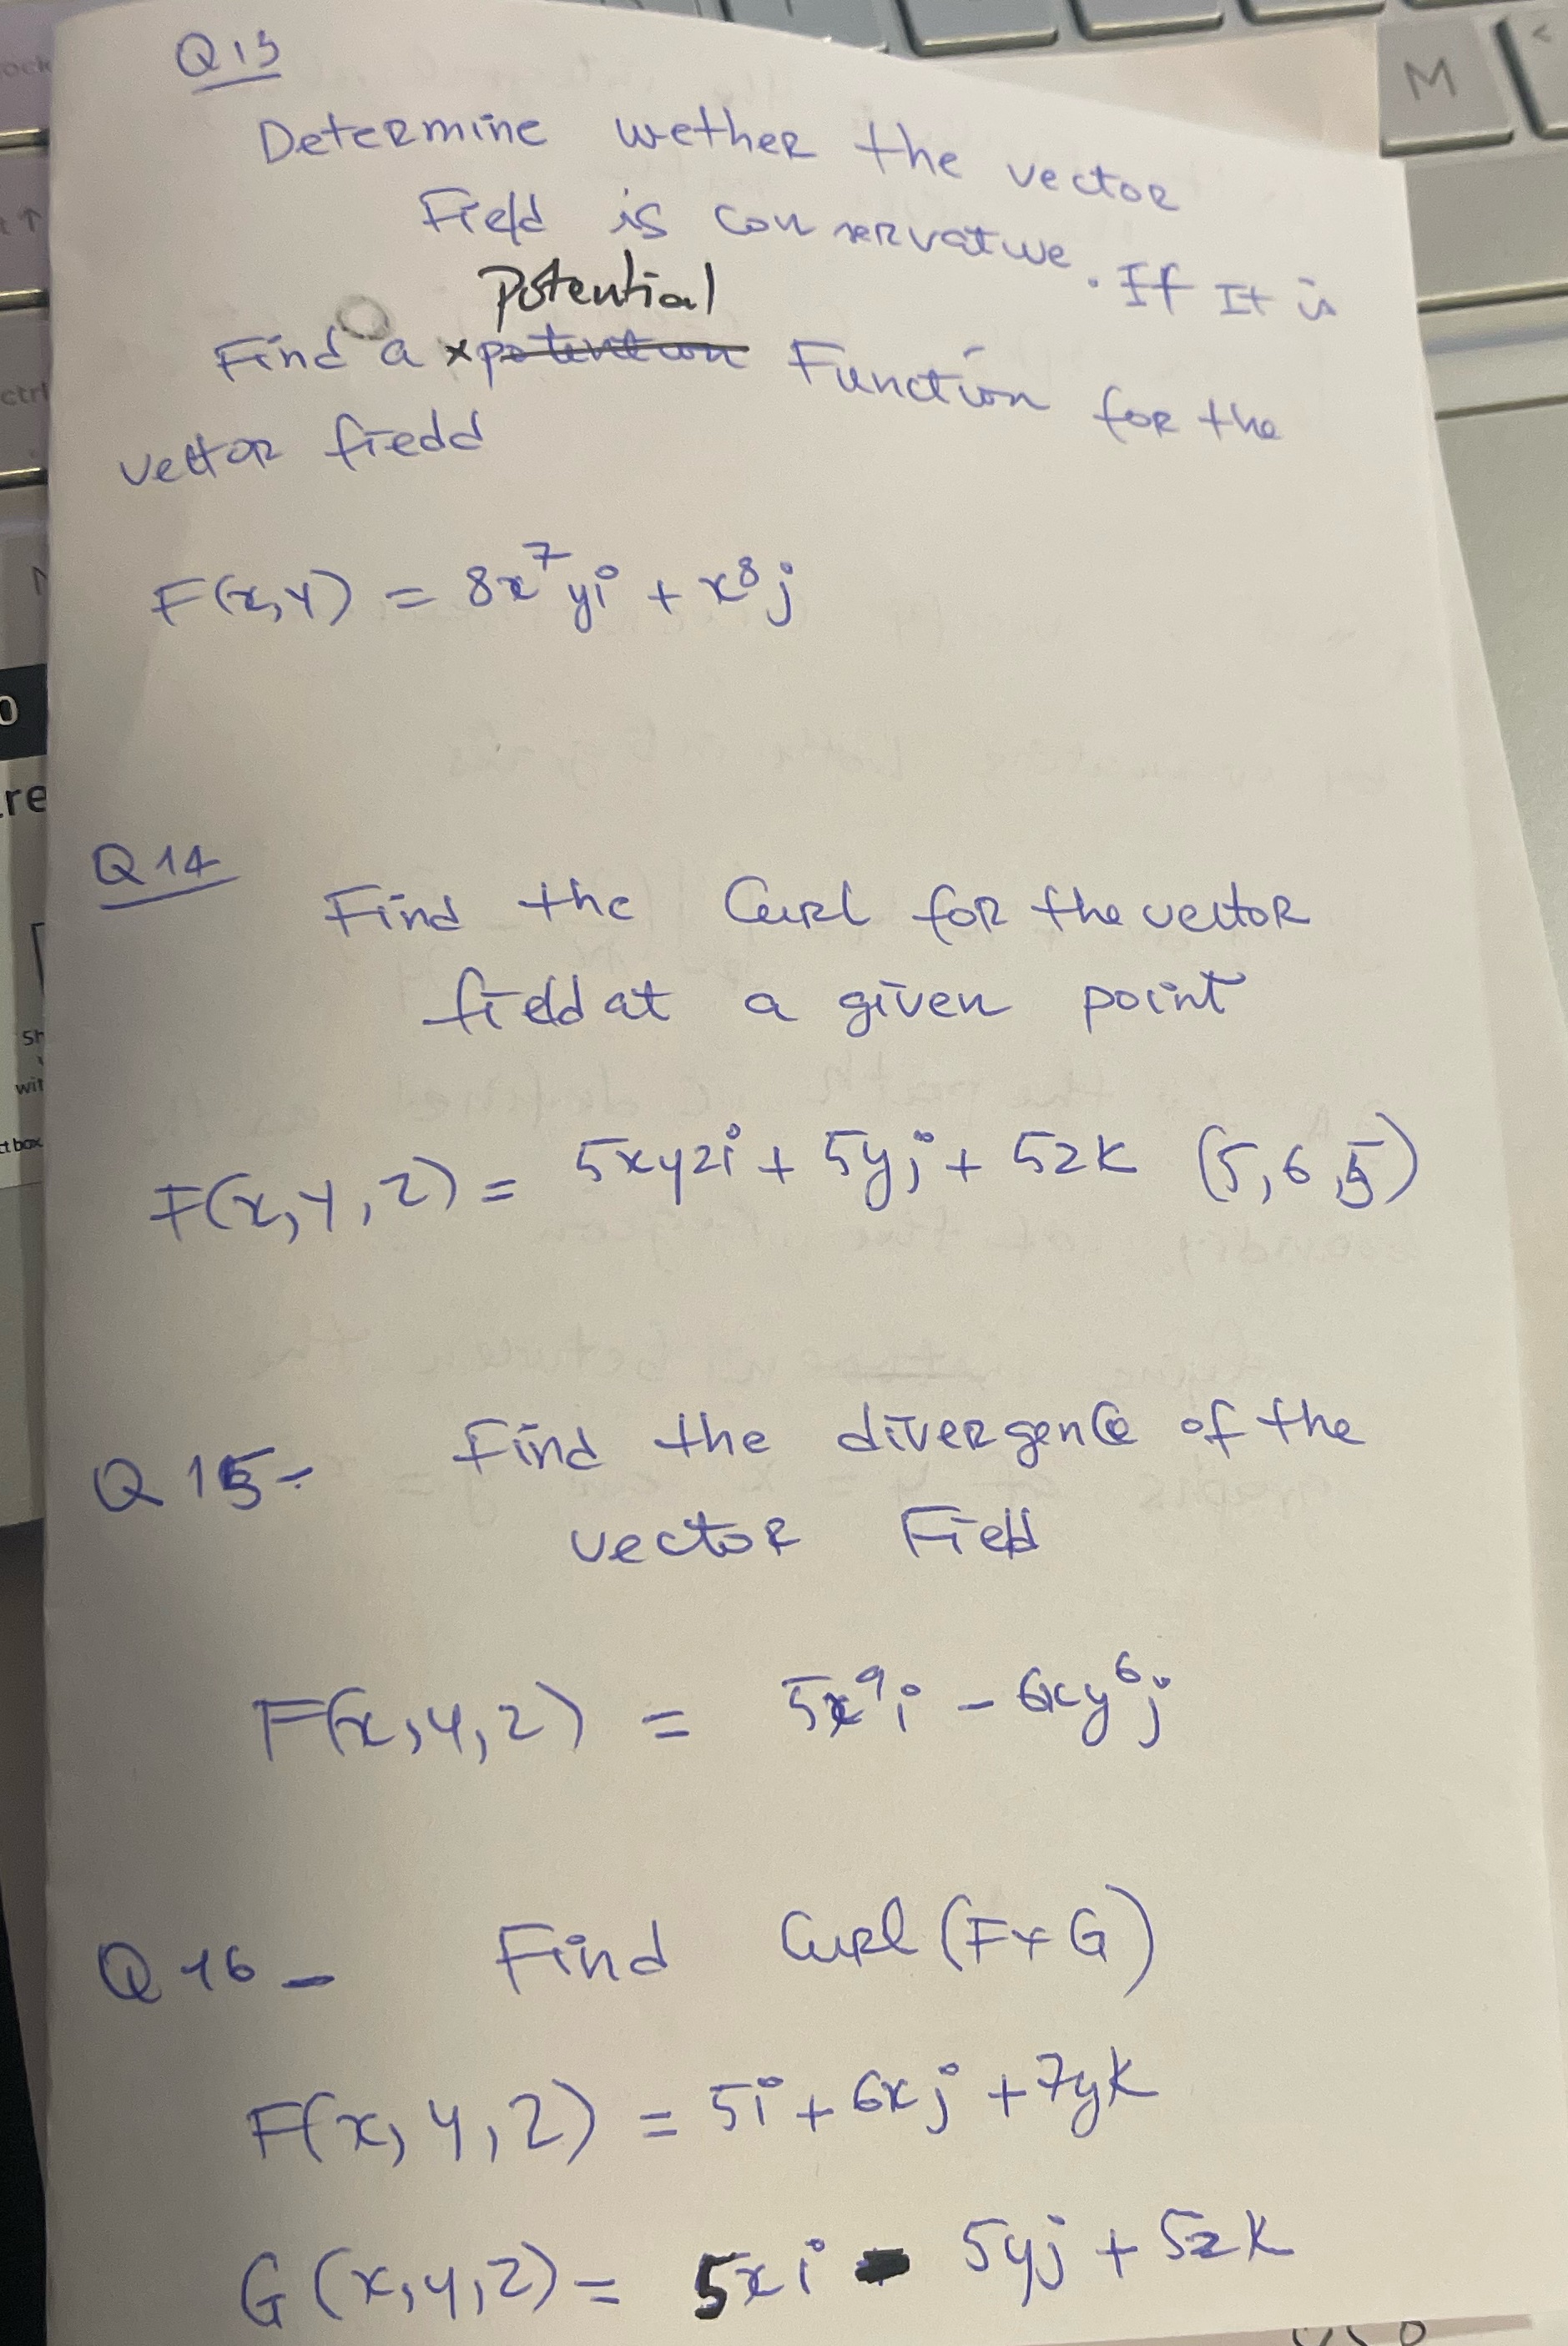 Q13
Determine wether the vector
Field is conservative. If It is
Potential
Find a x potention Function for the
vector field
F(x,y) = 8x⁷yi + x⁸j
Q14
Find the Curl for the vector
field at a given point
F(x,y,z) = 5xyzi + 5yj + 5zk (5,6,5)
Q15- Find the divergence of the
vector Field
F(x,y,z) = 5x⁹i - 6xy⁶j
Q16- Find Curl (F×G)
F(x,y,z) = 5i + 6xj + 7yk
G(x,y,z) = 5xi - 5yj + 5zk
M